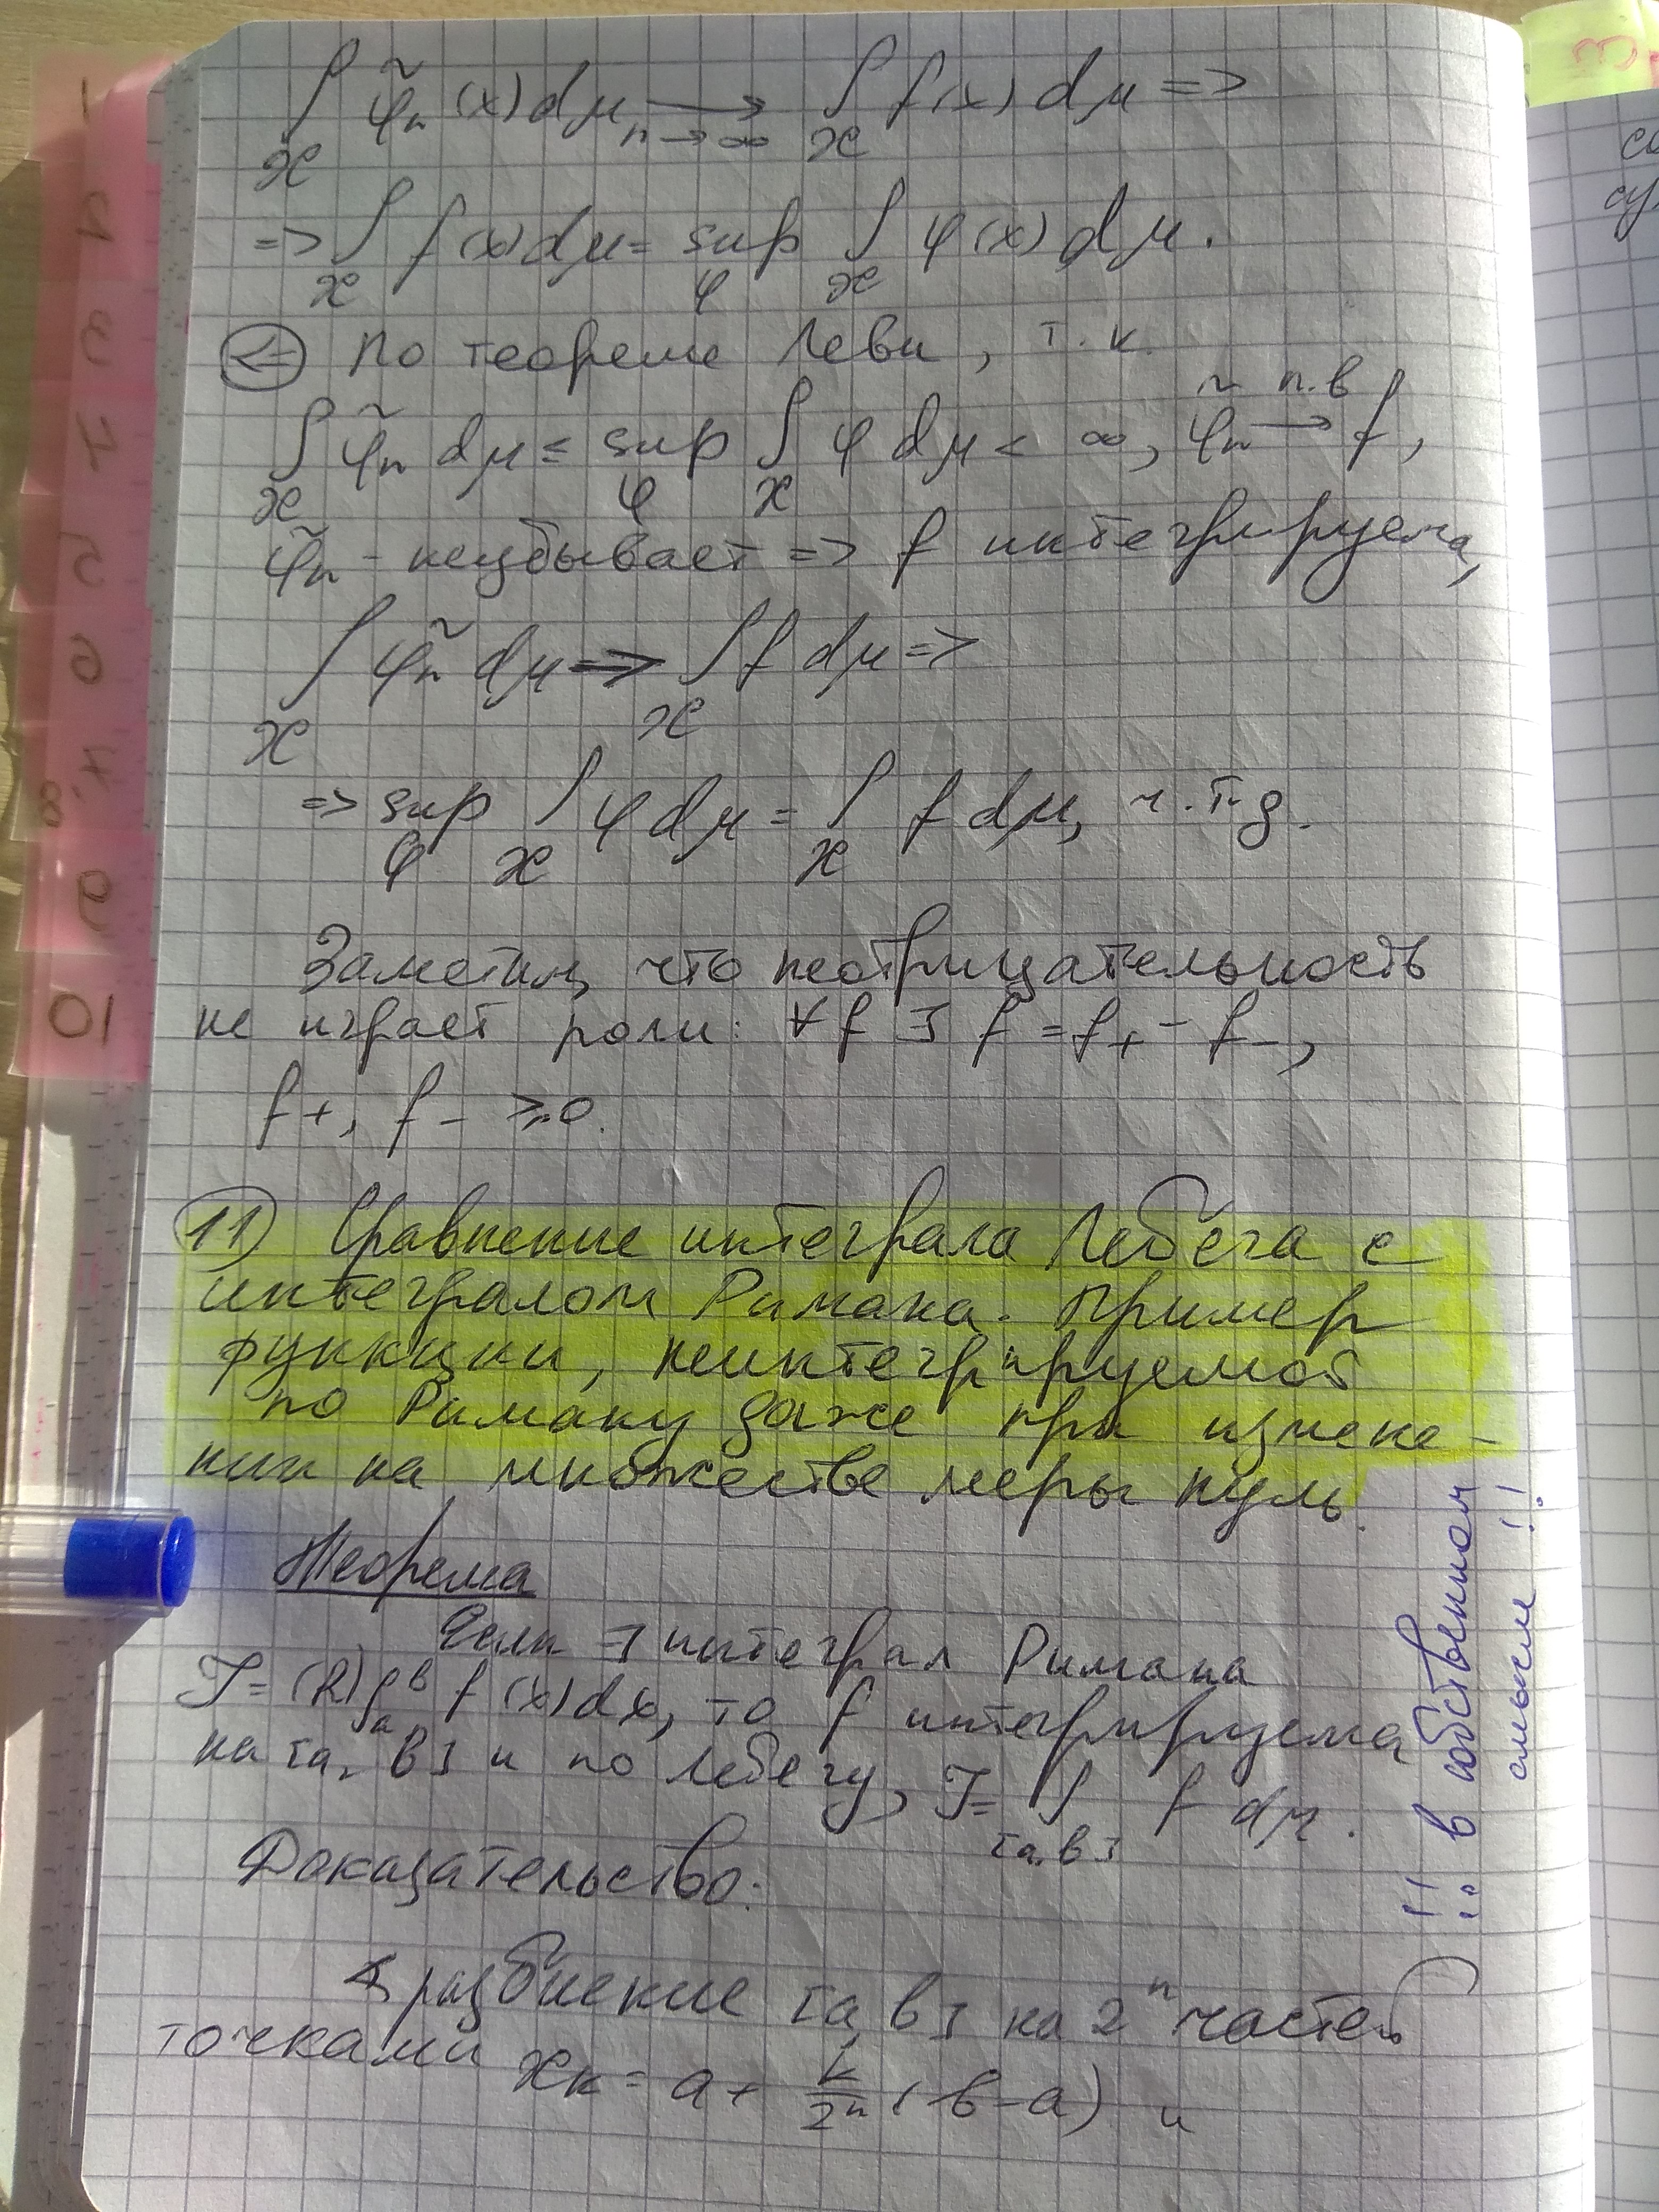 ∫_X φ̃ₙ(x)dμ →_{n→∞} ∫_X f(x)dμ =>
=> ∫_X f(x)dμ = sup_φ ∫_X φ(x)dμ.
(<=) По теореме Леви, т.к.
∫_X φ̃ₙ dμ ≤ sup_φ ∫_X φ dμ < ∞, φ̃ₙ →^{п.в} f,
φ̃ₙ - неубывает => f интегрируема,
∫_X φ̃ₙ dμ => ∫_X f dμ =>
=> sup_φ ∫_X φ dμ = ∫_X f dμ, ч.т.д.
Заметим, что неотрицательность
не играет роли: ∀f ∃ f = f₊ - f₋,
f₊, f₋ ≥ 0.
(11) Сравнение интеграла Лебега с
интегралом Римана. Пример
функции, неинтегрируемой
по Риману даже при измене-
нии на множестве меры нуль.
Теорема
Если ∃ интеграл Римана
J = (R)∫ₐᵇ f(x)dx, то f интегрируема
на [a, b] и по Лебегу, J = ∫_{[a,b]} f dμ.
Доказательство:
разбиение [a, b] на 2ⁿ частей
точками xₖ = a + k/2ⁿ (b-a) и
!! в собственном
смысле !!
1
2
3
4
5
6
7.
8
9
10
3